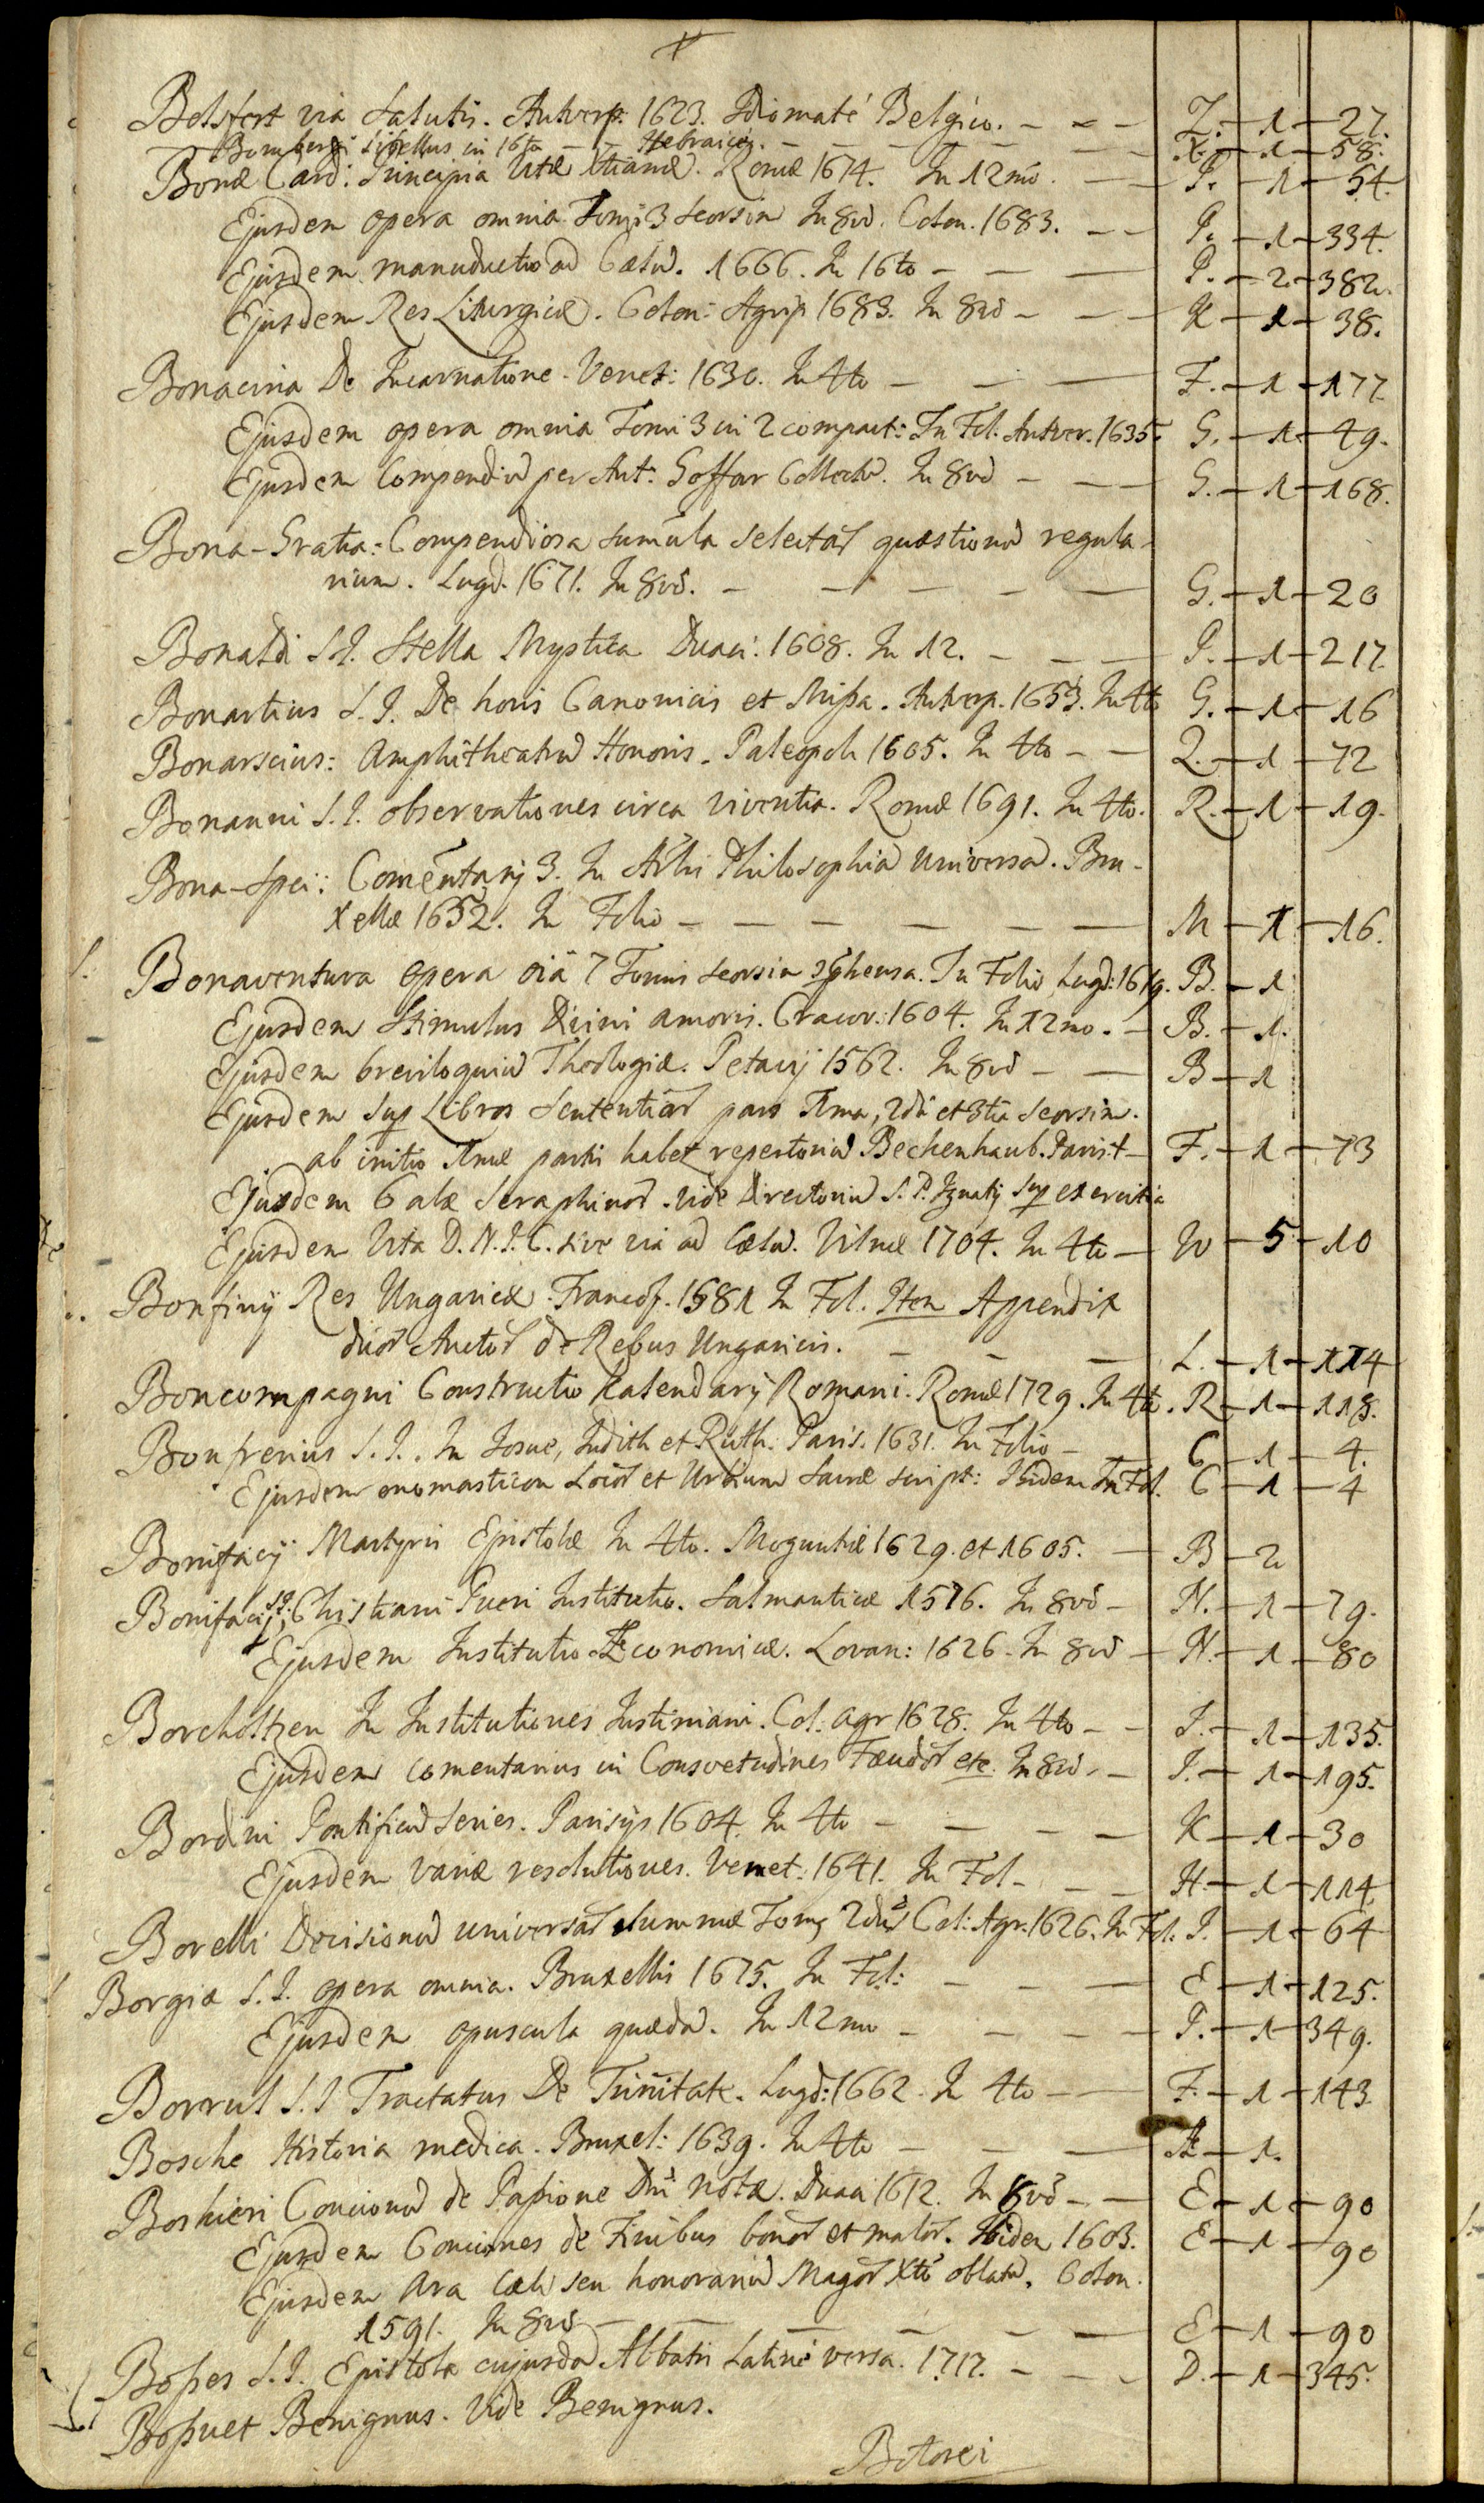 Bolsfert via Salutis. Antverp: 1623. Idiomate Belgico. - - - Z. - 1 - 27.
Bombergi Libellus in 16to - - Hebraice. - - - - X. - 1 - 58.
Bonæ Card: Principia Vitæ Xtianæ. Romæ 1674. In 12mo. - - P. - 1 - 54.
Ejusdem opera omnia Tomi 3 seorsim In 8vo. Colon. 1683. - - P. - 1 - 334.
Ejusdem manuductio ad Cælū. 1666. In 16to - - - P. - 2 - 382.
Ejusdem Res Liturgicæ. Colon: Agrip 1683. In 8vo - - - K - 1 - 38.
Bonacina De Incarnatione. Venet: 1630. In 4to - - - F. - 1 - 177
Ejusdem opera omnia Tomi 3 in 2 compact: In Fol. Antver. 1635. G. - 1 - 49.
Ejusdem Compendiū per Ant: Goffar Collectū. In 8vo - - - G. - 1 - 168.
Bona-Gratia: Compendiosa sumula selectar quæstionū regula-
rium. Lugd. 1671. In 8vo. - - - - - G. - 1 - 20
Bonaldi S.J. Stella Mystica Duaci. 1608. In 12. - - - P. - 1 - 217
Bonartius S.J. De horis Canonicis et Missa. Antverp. 1653. In 4to G. - 1 - 16
Bonarscius: Amphitheatrū Honoris. Paleopoli 1605. In 4to - - Q. - 1 - 72
Bonanni S.J. observationes circa viventia. Romæ 1691. In 4to. R. - 1 - 19.
Bona-Spei: Comentarij 3. In Arlis Philosophiā universā. Bru-
xellæ 1652. In Folio - - - - - - M - 1 - 16.
S. Bonaventura opera oia 7 Tomis seorsim In Folio Lugd: 1619. B. - 1
Ejusdem Stimulus Divini amoris. Cracov: 1604. In 12mo. - B. - 1.
Ejusdem breviloquiū Theologiæ. Petavij 1562. In 8vo - - B - 1
Ejusdem Sup Libros Sententiar pars 1ma, 2da et 3tia seorsim.
ab initio 1mæ partis habet repertoriū Bechenhaub. Paris. - F. - 1 - 73
Ejusdem 6 alæ Seraphinor. vide Directoriū S. P. Ignatij Sup exercitia
Ejusdem Vita D.N.J.C. sive via ad Cælū. Vilnæ 1704. In 4to - W - 5 - 10
Bonfinij Res Ungaricæ. Francof. 1581 In Fol. Item Appendix
duor Auctor de Rebus Ungaricis. - - - L. - 1 - 114
Boncompagni Constructio Kalendarij Romani. Romæ 1729. In 4to. R - 1 - 118.
Bonfrerius S.J. In Josue, Judith et Ruth. Paris. 1631. In Folio - - C - 1 - 4.
Ejusdem onomasticon Locor et Urbium Sacræ script: Ibidem In Fol. C - 1 - 4
Bonifacij Martyris Epistolæ In 4to. Moguntiæ 1629. et 1605. - B - 2
Bonifacij S.J. Christiani Pueri Institutio. Salmanticæ 1576. In 8vo - H. - 1 - 79.
Ejusdem Institutio Æconomicæ. Lovan: 1626. In 8vo - H. - 1 - 80
Borcholtzen In Institutiones Justiniani. Col. agr 1628. In 4to - - I. - 1 - 135.
Ejusdem comentarius in Consvetudines Fæudor etc. In 8vo. - I. - 1 - 195.
Bordini Pontificū Series. Parisijs 1604. In 4to - - - - K - 1 - 30
Ejusdem variæ resolutiones. Venet: 1641. In Fol - - - H. - 1 - 114
Borelli Decisionū universar Summæ Tomg 2dus Col: Agr. 1626. In Fol. I. - 1 - 64
Borgiæ S.J. opera omnia. Bruxellis 1675. In Fol: - - - E - 1 - 125.
Ejusdem opuscula quædā. In 12mo - - - - P. - 1 - 349.
Borrul S.J Tractatus De Trinitate. Lugd: 1662. In 4to - - F. - 1 - 143
Bosche Historia medica. Bruxel: 1639. In 4to - - - Æ - 1.
Boskieri Concionū de Passione Dni notæ. Duaci 1612. In 8vo - - E - 1 - 90
Ejusdem Conciones de Finibus bonor et malor. Ibidem 1603. E - 1 - 90
Ejusdem Ara Cæli seu honorariū Magor Xto oblatū. Colon.
1591. In 8vo - - - - - - E - 1 - 90
Bosses S.J. Epistola cujusdā Abbatis Latine versa. 1717. - - - D. - 1 - 345.
Bossuet Benignus. Vide Benignus.
Botorei